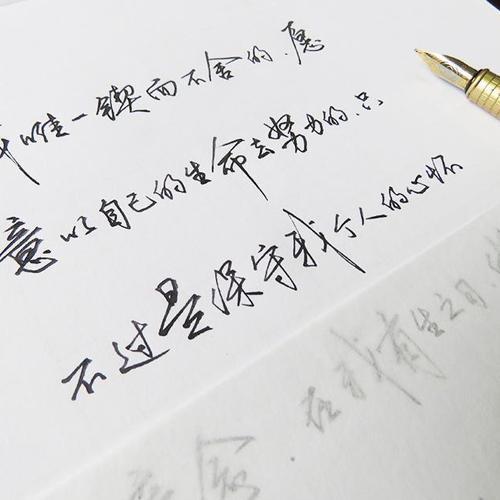 我唯一锲而不舍的,愿
意以自己的生命去努力的,只
不过是保守我个人的心怀
念.在我有生之日